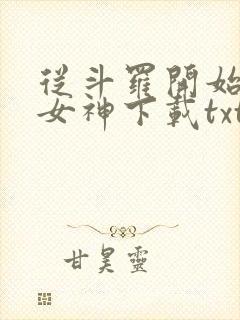 從斗羅開始
女神下載txt
甘昊靈